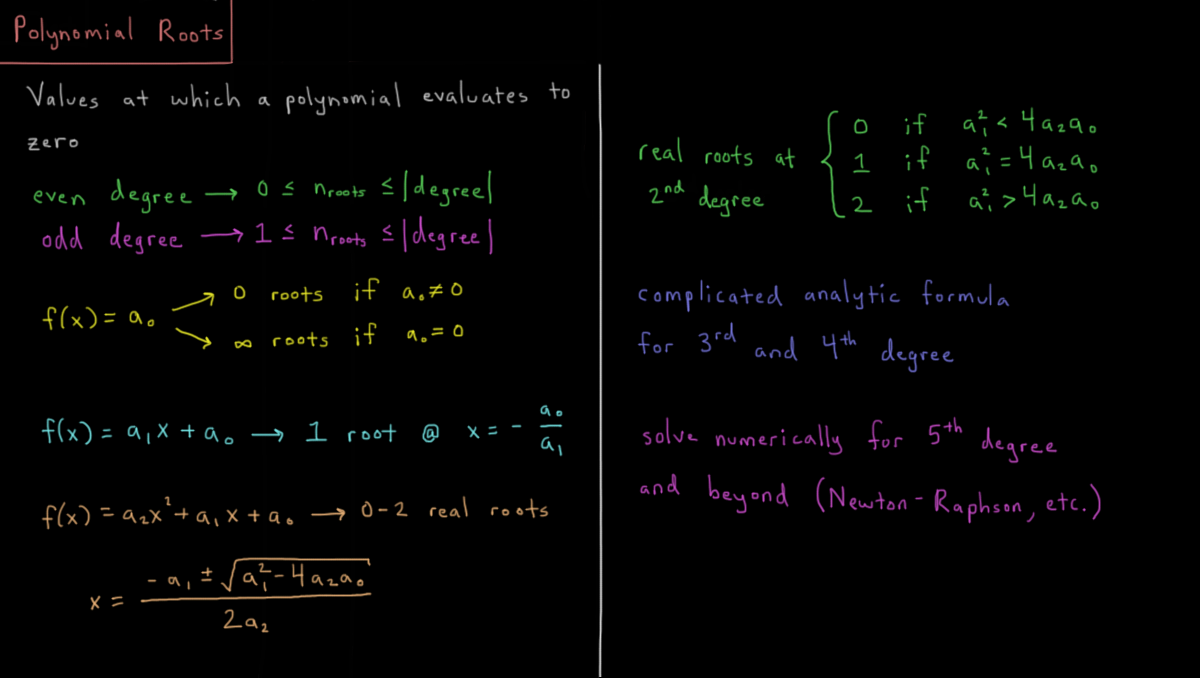 Polynomial Roots
Values at which a polynomial evaluates to
zero
even degree → 0 ≤ n_roots ≤ |degree|
odd degree → 1 ≤ n_roots ≤ |degree|
f(x) = a₀
0 roots if a₀ ≠ 0
∞ roots if a₀ = 0
f(x) = a₁x + a₀ → 1 root @ x = - a₀/a₁
f(x) = a₂x² + a₁x + a₀ → 0-2 real roots
x = (-a₁ ± √(a₁² - 4a₂a₀)) / 2a₂
real roots at
2nd degree
0 if a₁² < 4a₂a₀
1 if a₁² = 4a₂a₀
2 if a₁² > 4a₂a₀
complicated analytic formula
for 3rd and 4th degree
solve numerically for 5th degree
and beyond (Newton-Raphson, etc.)